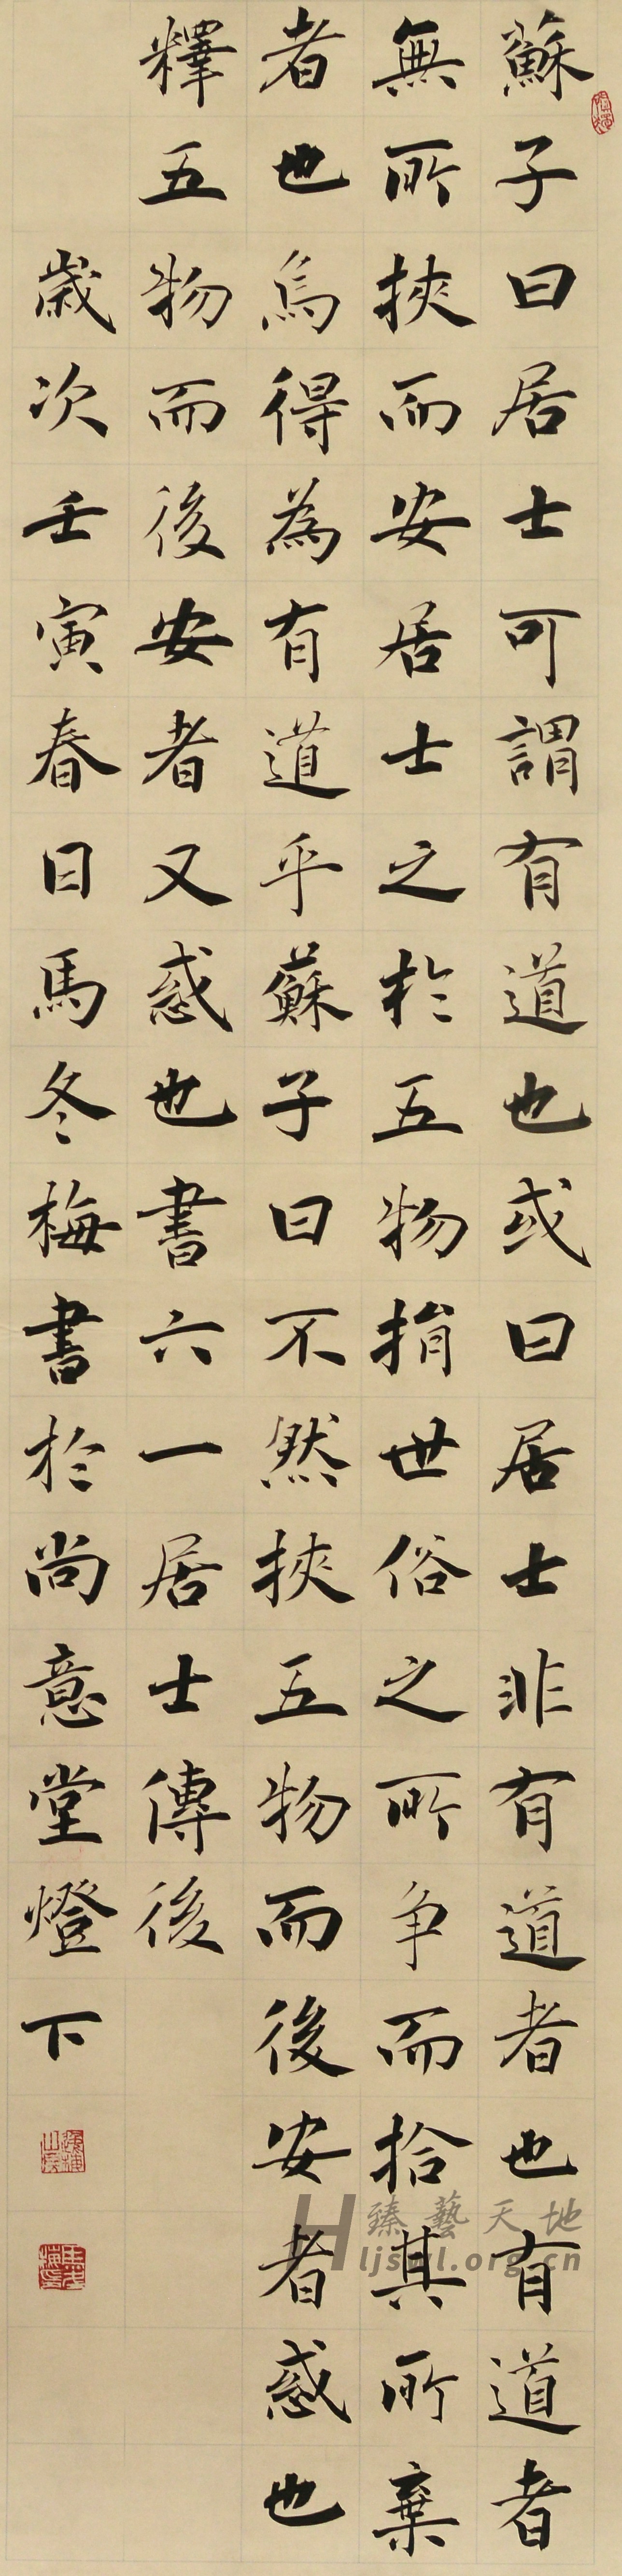 蘇子曰居士可謂有道也或曰居士非有道者也有道者
無所挾而安居士之於五物捐世俗之所争而拾其所棄
者也烏得為有道乎蘇子曰不然挾五物而後安者惑也
釋五物而後安者又惑也書六一居士傳後
歲次壬寅春日馬冬梅書於尚意堂燈下
臻藝天地
ljswl.org.cn